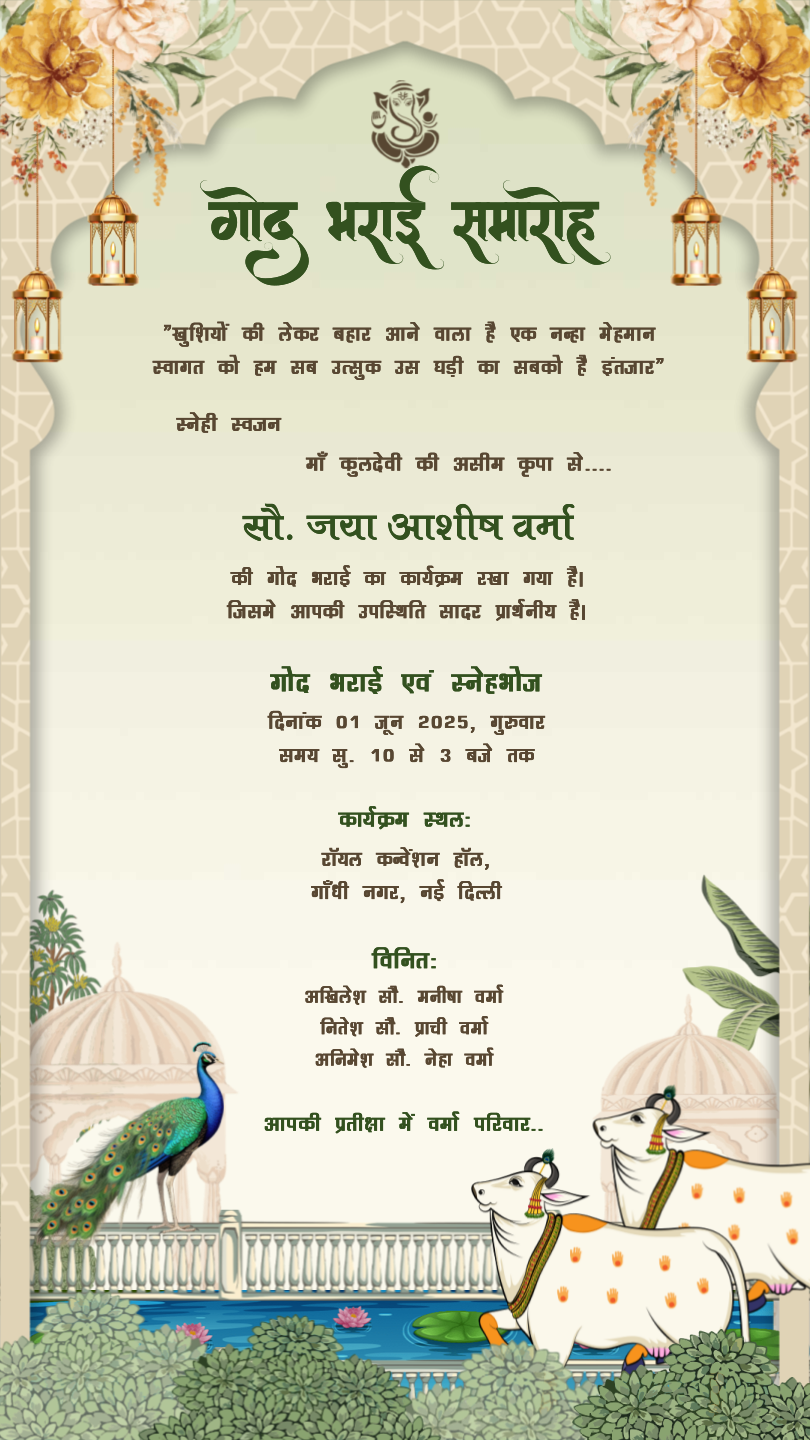 गोद भराई समारोह
"खुशियों की लेकर बहार आने वाला है एक नन्हा मेहमान
स्वागत को हम सब उत्सुक उस घड़ी का सबको है इंतजार"
स्नेही स्वजन
माँ कुलदेवी की असीम कृपा से....
सौ. जया आशीष वर्मा
की गोद भराई का कार्यक्रम रखा गया है।
जिसमे आपकी उपस्थिति सादर प्रार्थनीय है।
गोद भराई एवं स्नेहभोज
दिनांक 01 जून 2025, गुरुवार
समय सु. 10 से 3 बजे तक
कार्यक्रम स्थल:
रॉयल कन्वेंशन हॉल,
गाँधी नगर, नई दिल्ली
विनित:
अखिलेश सौ. मनीषा वर्मा
नितेश सौ. प्राची वर्मा
अनिमेश सौ. नेहा वर्मा
आपकी प्रतीक्षा में वर्मा परिवार..